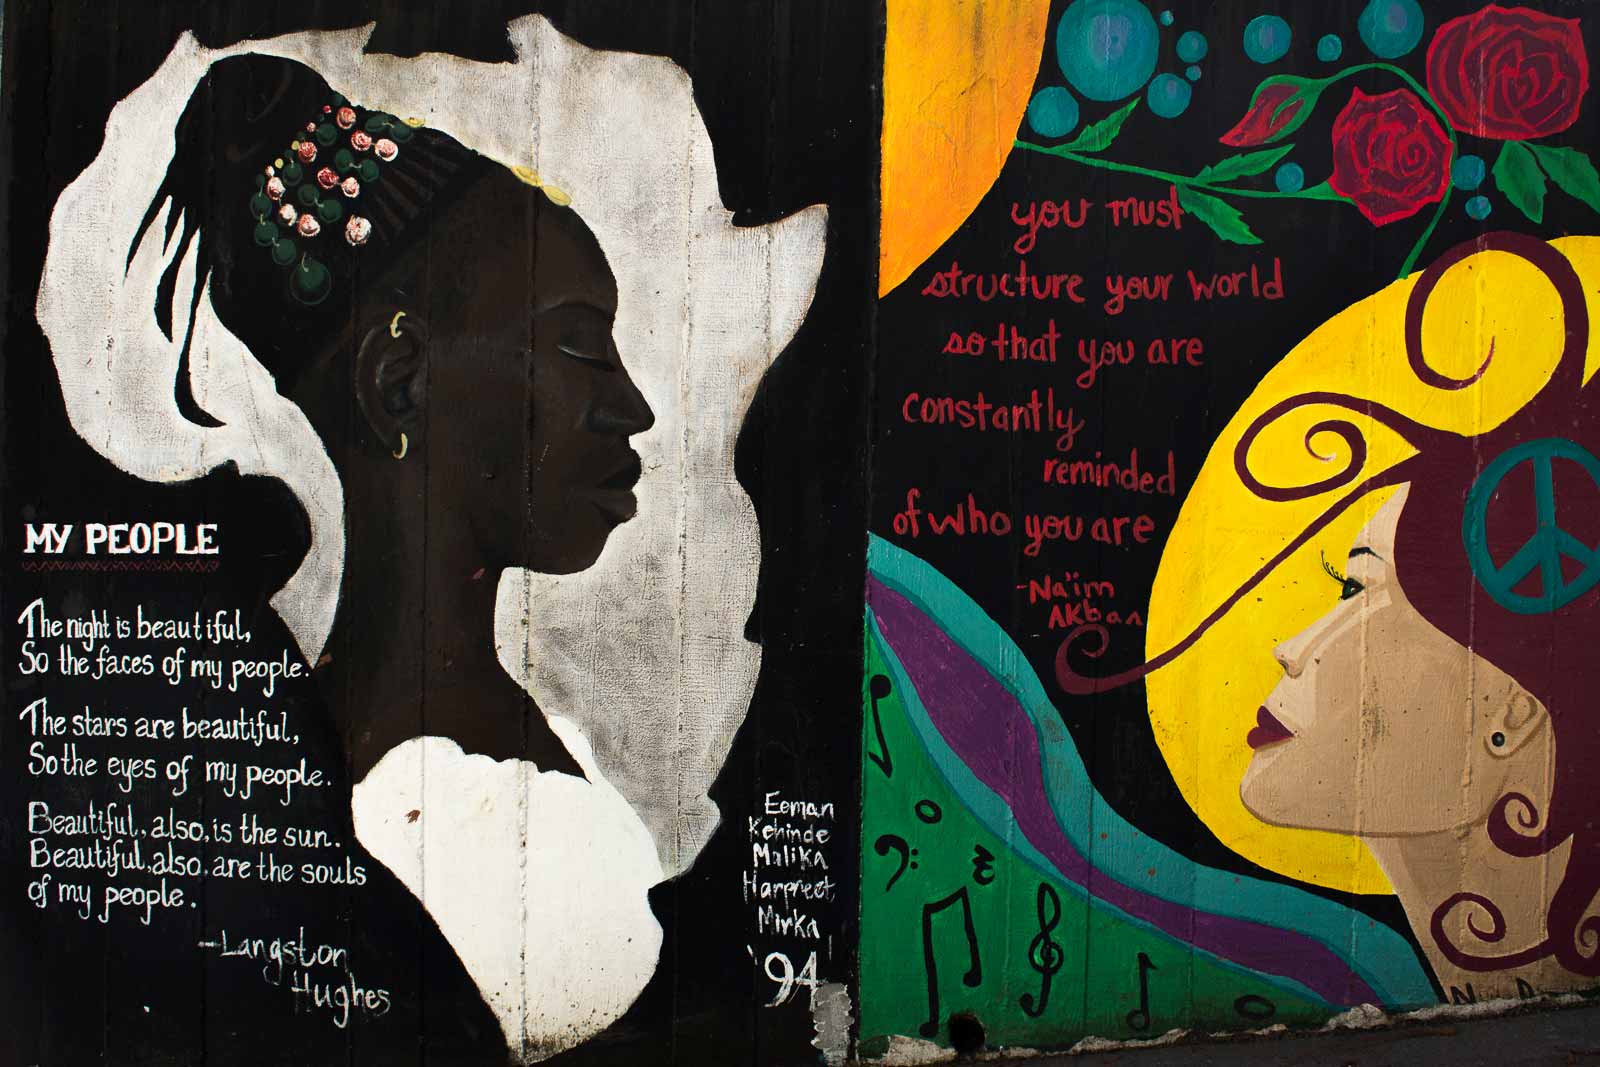 MY PEOPLE
The night is beautiful,
So the faces of my people.
The stars are beautiful,
So the eyes of my people.
Beautiful, also, is the sun.
Beautiful, also, are the souls
of my people.
-Langston
Hughes
Eeman
Kehinde
Malika
Harpreet
Mirka
'94
you must
structure your world
so that you are
constantly
reminded
of who you are
-Na'im
AKban